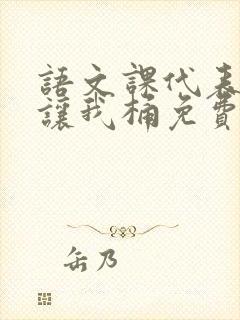 語文課代表
讓我桶免費
缶乃